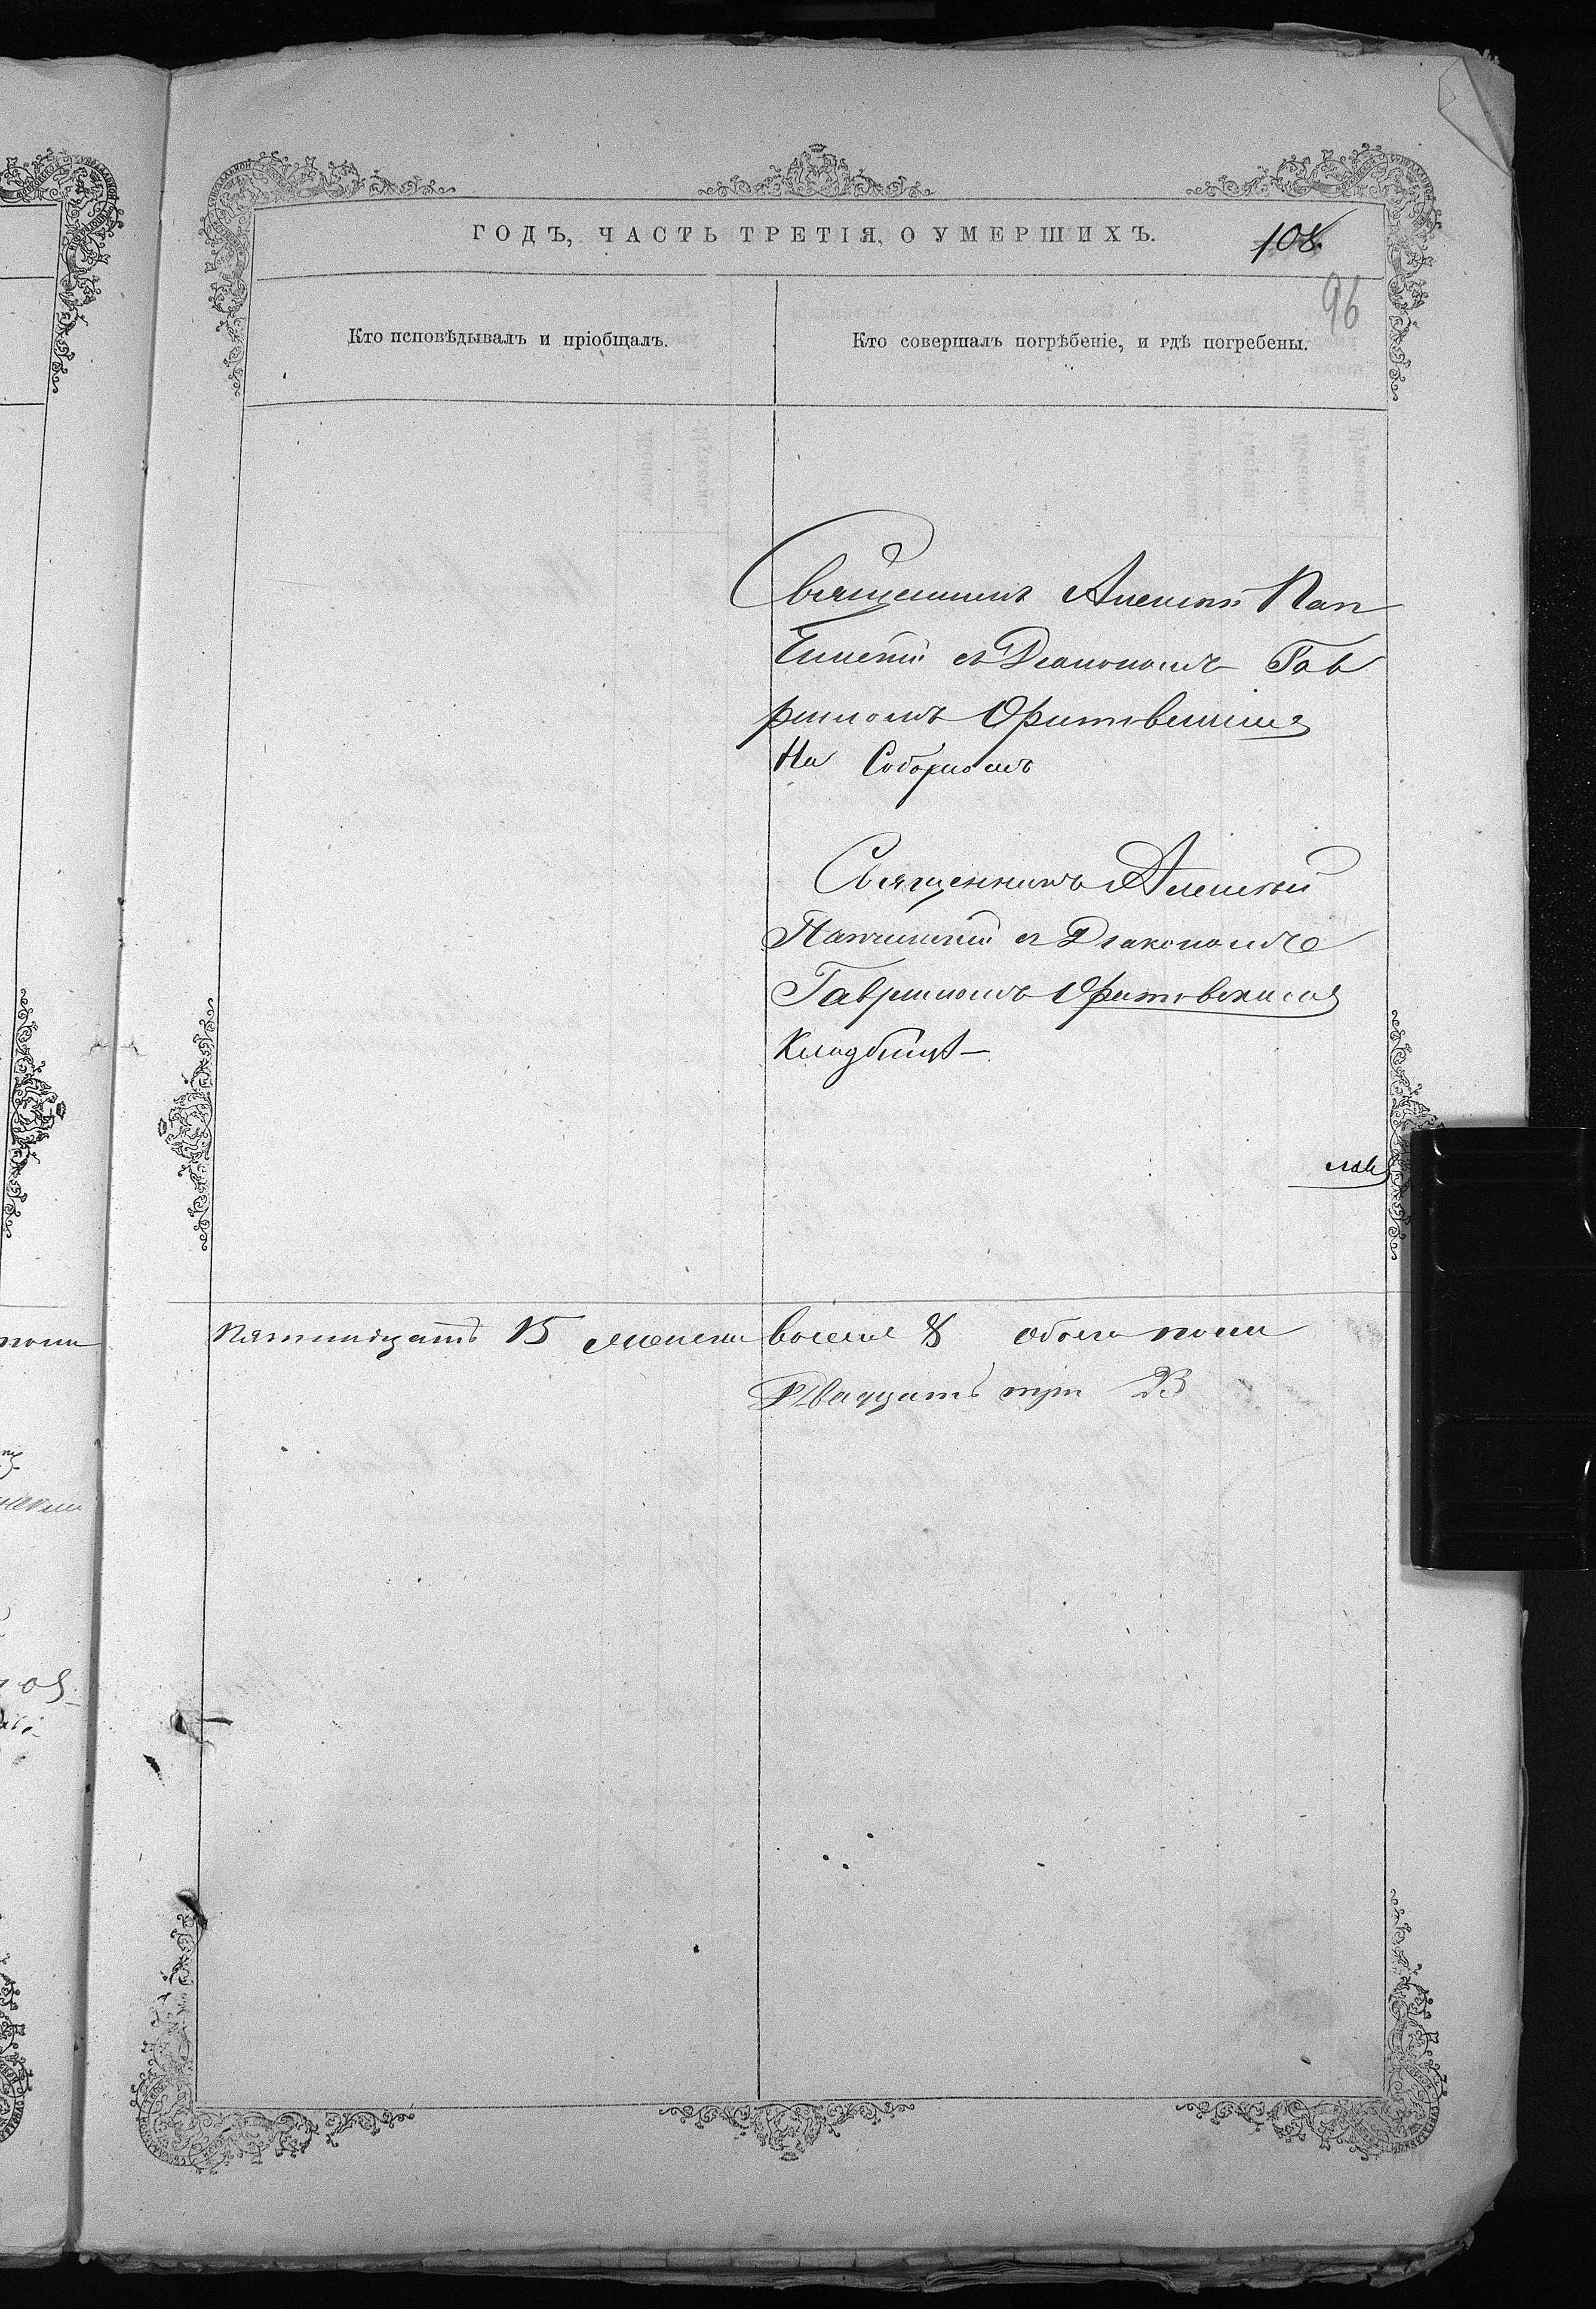 ГОДЪ, ЧАСТЬ ТРЕТІЯ, О УМЕРШИХЪ.
108.
96
Кто исповѣдывалъ и пріобщалъ.
Кто совершалъ погрѣбеніе, и гдѣ погребены.
Священникъ Алексій Пап
чинскій съ Діакономъ Гав
риломъ
На Соборномъ
Священникъ Алексѣй
Папчинскій съ Діакономъ
Гавриломъ
Кладбищѣ
Пятнадцать 15 женска восемь 8 обоего пола
Двадцать три 23